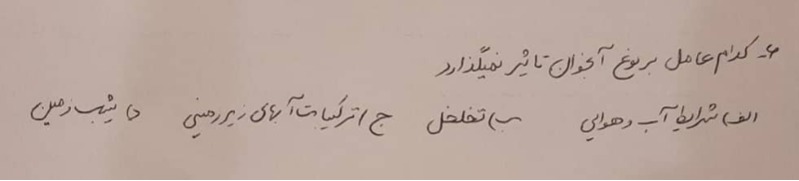 ۶- کدام عامل بر نوع آبخوان تاثیر نمیگذارد
الف) شرایط آب و هوایی ب) تخلخل ج) ترکیبات آبهای زیرزمینی د) شیب زمین